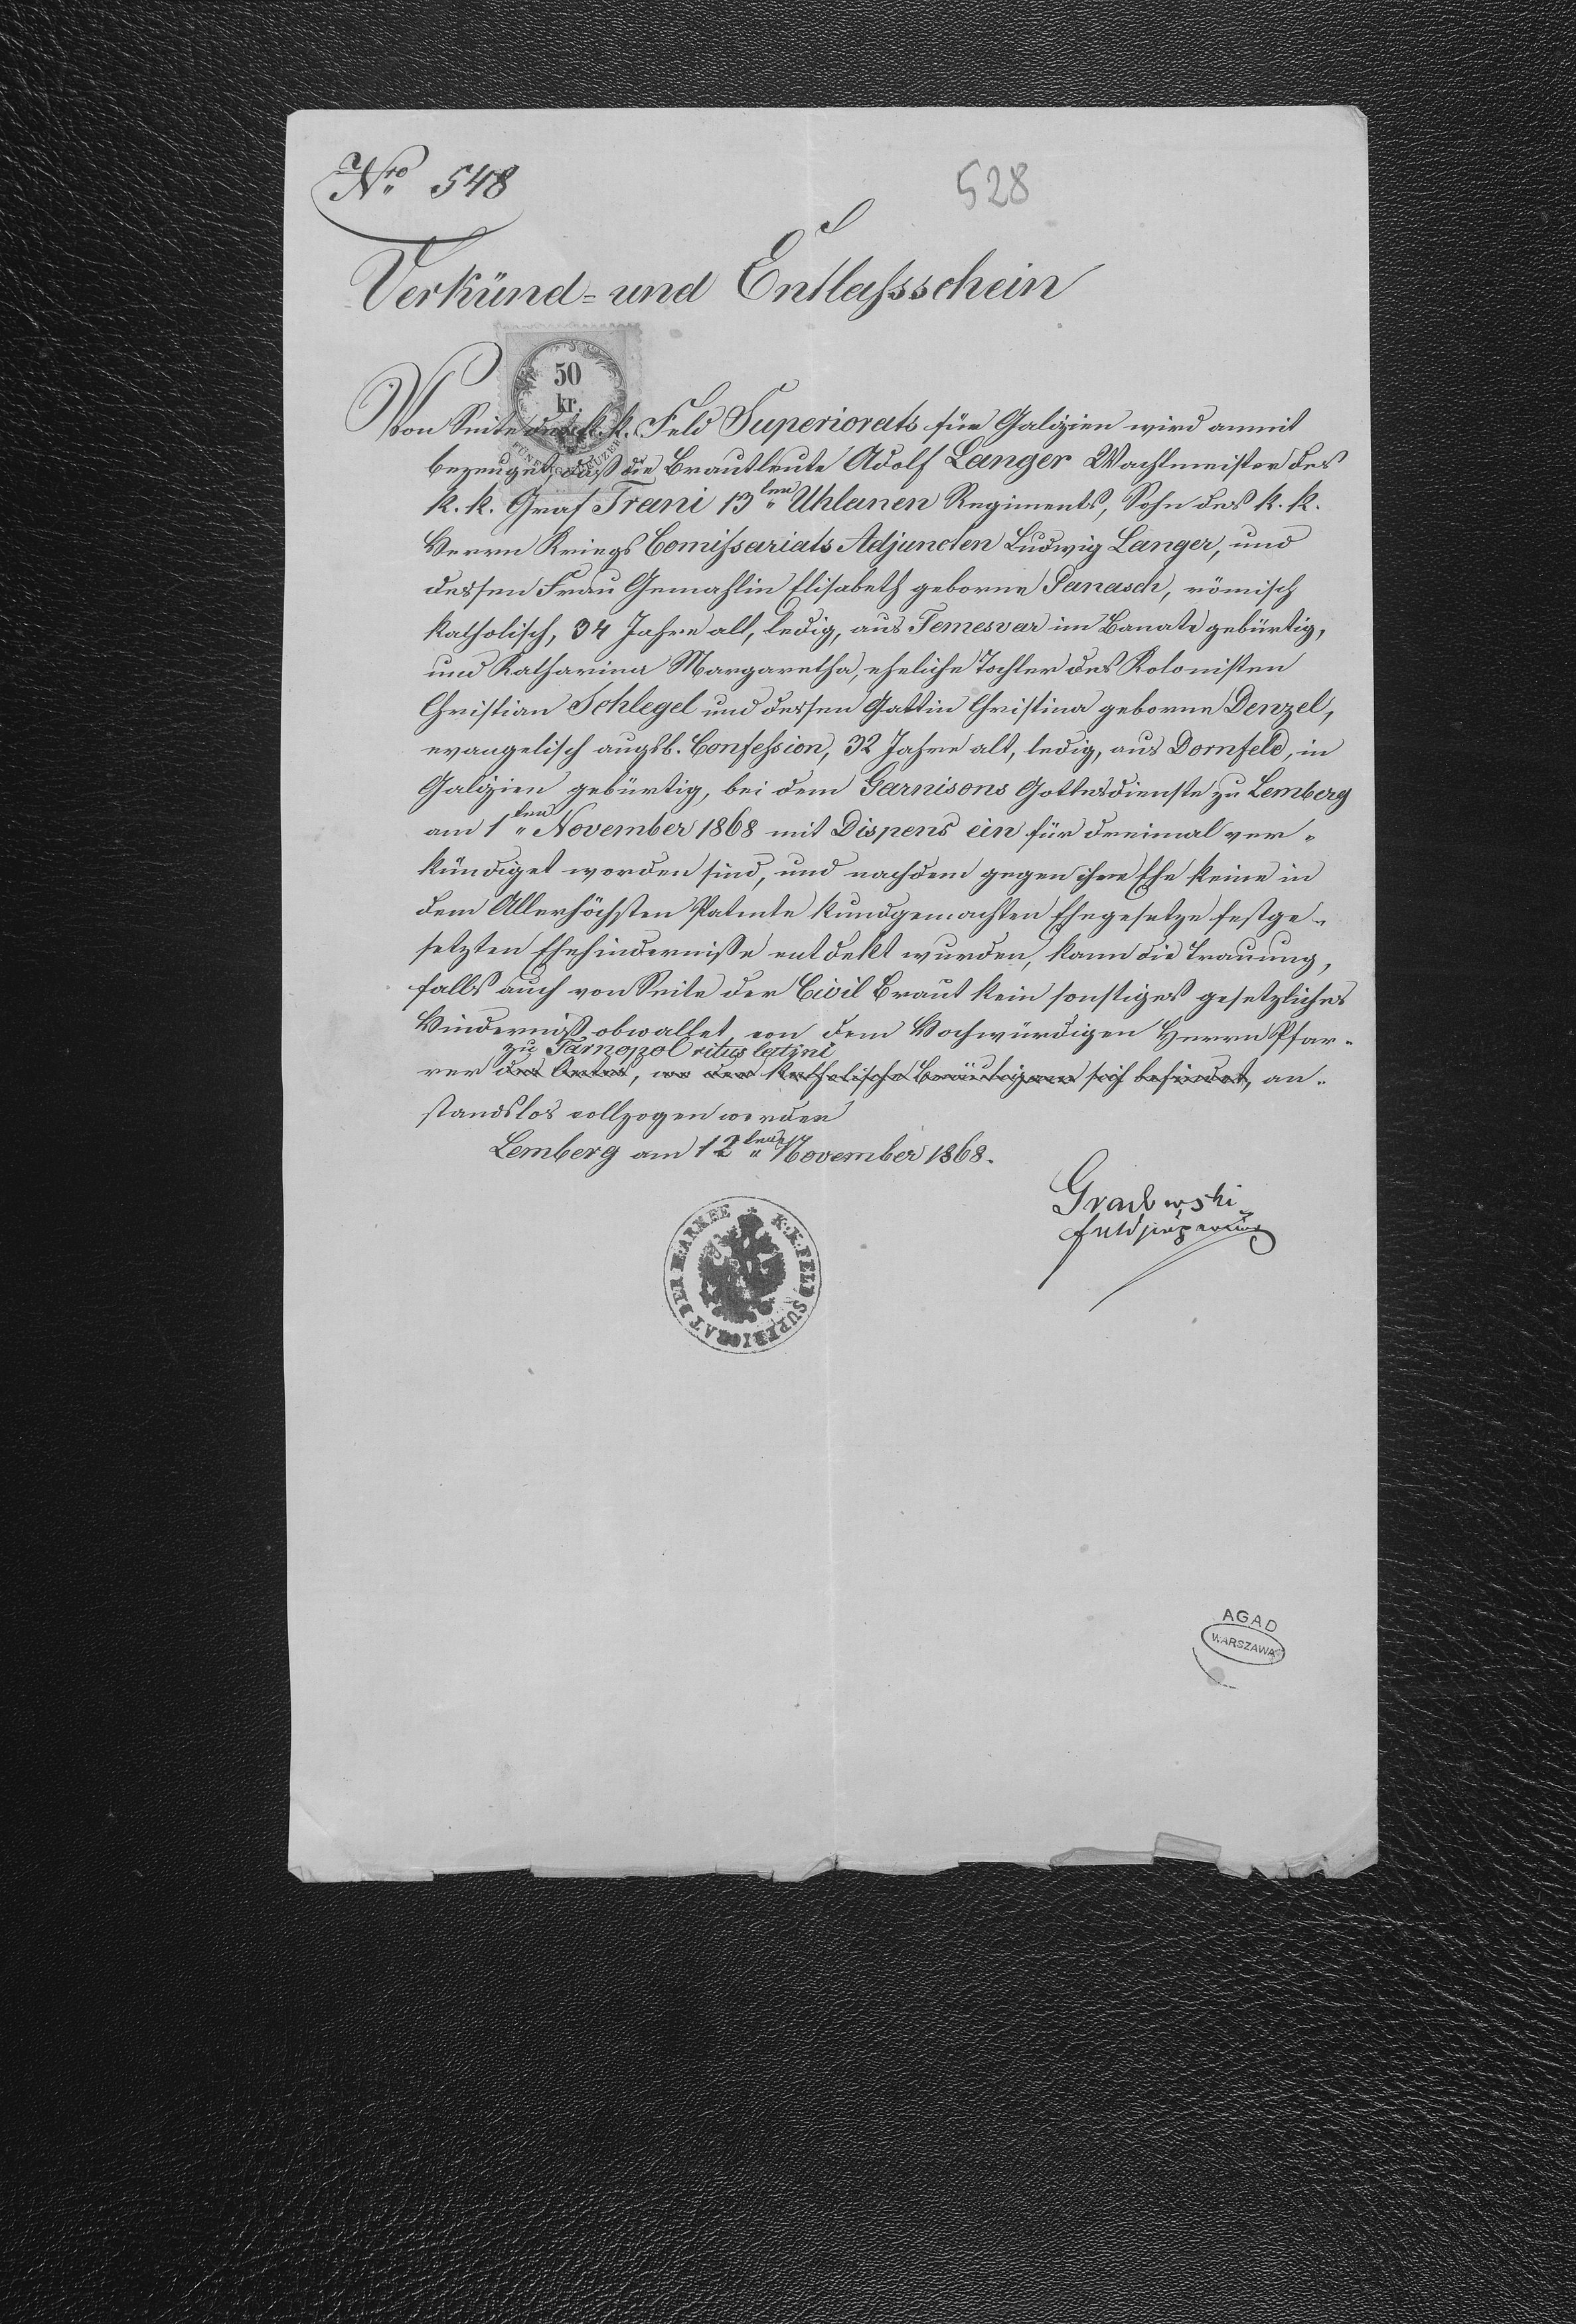 Nro 548
528
Verkünd- und Entlaßsschein
50
kr.
Von Seite des k. k. Feld Superiorats für Galizien wird anmit
bezeuget, daß die Brautleute Adolf Langer Wachtmeister des
k. k. Graf Trani 13ten Uhlanen Regiments, Sohn des k. k.
Herrn Kriegs Comißariats Adjuncten Ludwig Langer, und
dessen Frau Gemahlin Elisabeth geborne Panasch, römisch
katholisch, 34 Jahre alt, ledig, aus Temesvar im Banate gebürtig,
und Katharina Margaretha, eheliche Tochter des Kolonisten
Christian Schlegel und dessen Gattin Christina geborne Denzel,
evangelisch augsb. Confeßion, 32 Jahre alt, ledig, aus Dornfeld, in
Galizien gebürtig, bei dem Garnisons Gottesdienste zu Lemberg
am 1ten November 1868 mit Dispens ein für dreimal ver-
kündiget worden sind, und nachdem gegen ihre Ehe keine in
dem Allerhöchsten Patente kundgemachten Ehegesetze festge-
setzten Ehehinderniße entdekt wurden, kann die Trauung,
falls auch von Seite der Civil Braut kein sonstiges gesetzliches
Hinderniß obwaltet von dem Hochwürdigen Herrn Pfar-
zu Tarnopol ritus latini
rer des Ortes, wo der katholische Bräutigam sich befindet, an-
standslos vollzogen werden
Lemberg am 12ten November 1868.
Feldsuperior
K. K. FELD SUPERIORAT DER II: ARMEE
AGAD
WARSZAWA